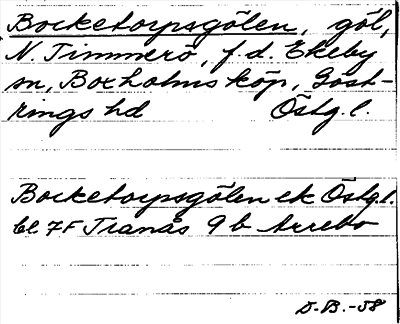 Bocketorpsgölen, göl,
N. Timmerö, f.d. Ekeby
sn, Boxholms köp, Göst-
rings hd Östg. l.
Bocketorpsgölen ek Östg. l.
bl 7F Tranås 9 b Arrebo
D.B.-58